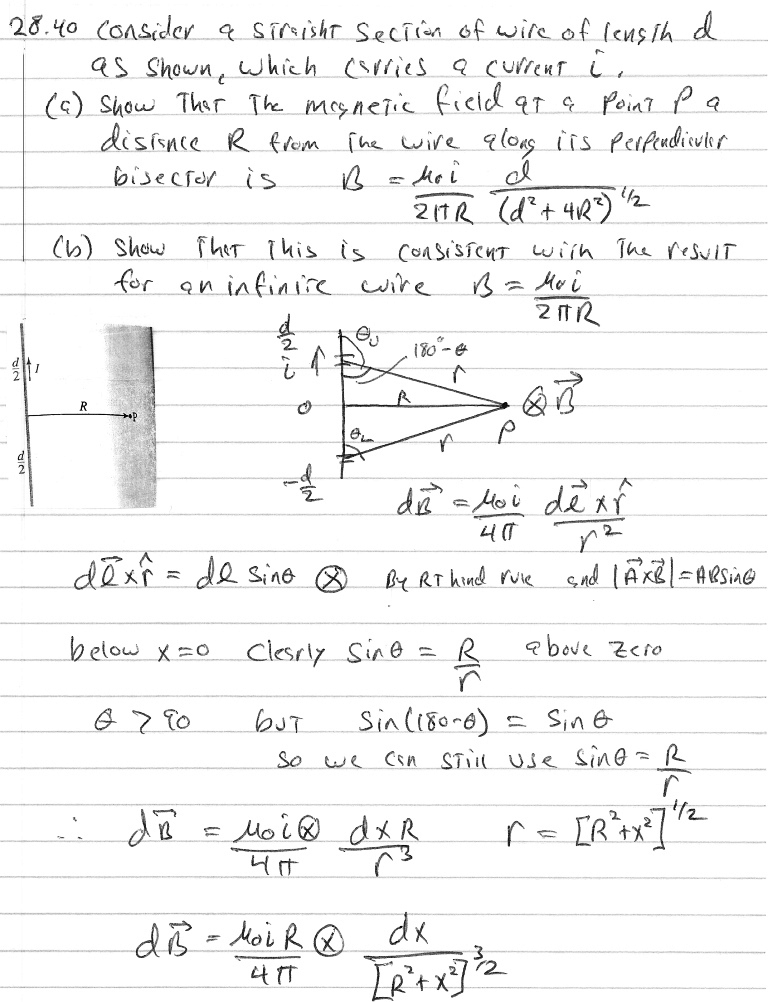 28.40 Consider a straight section of wire of length d
as shown, which carries a current i.
(a) Show that the magnetic field at a point P a
distance R from the wire along its perpendicular
bisector is B = μ₀i/2πR d/(d² + 4R²)^1/2
(b) Show that this is consistent with the result
for an infinite wire B = μ₀i/2πR
d/2 I
R P
d/2
d/2 θU
i ↑ 180°-θ r
0 R P ⊗ B⃗
θL r
-d/2
dB⃗ = μ₀i/4π dℓ⃗ x r̂/r²
dℓ⃗ x r̂ = dℓ sinθ ⊗ By RT hand rule and |A⃗xB⃗| = ABsinθ
below x=0 Clearly sinθ = R/r above zero
θ > 90 but sin(180-θ) = sinθ
so we can still use sinθ = R/r
∴ dB⃗ = μ₀i⊗/4π dxR/r³ r = [R²+x²]^1/2
dB⃗ = μ₀iR/4π ⊗ dx/[R²+x²]^3/2